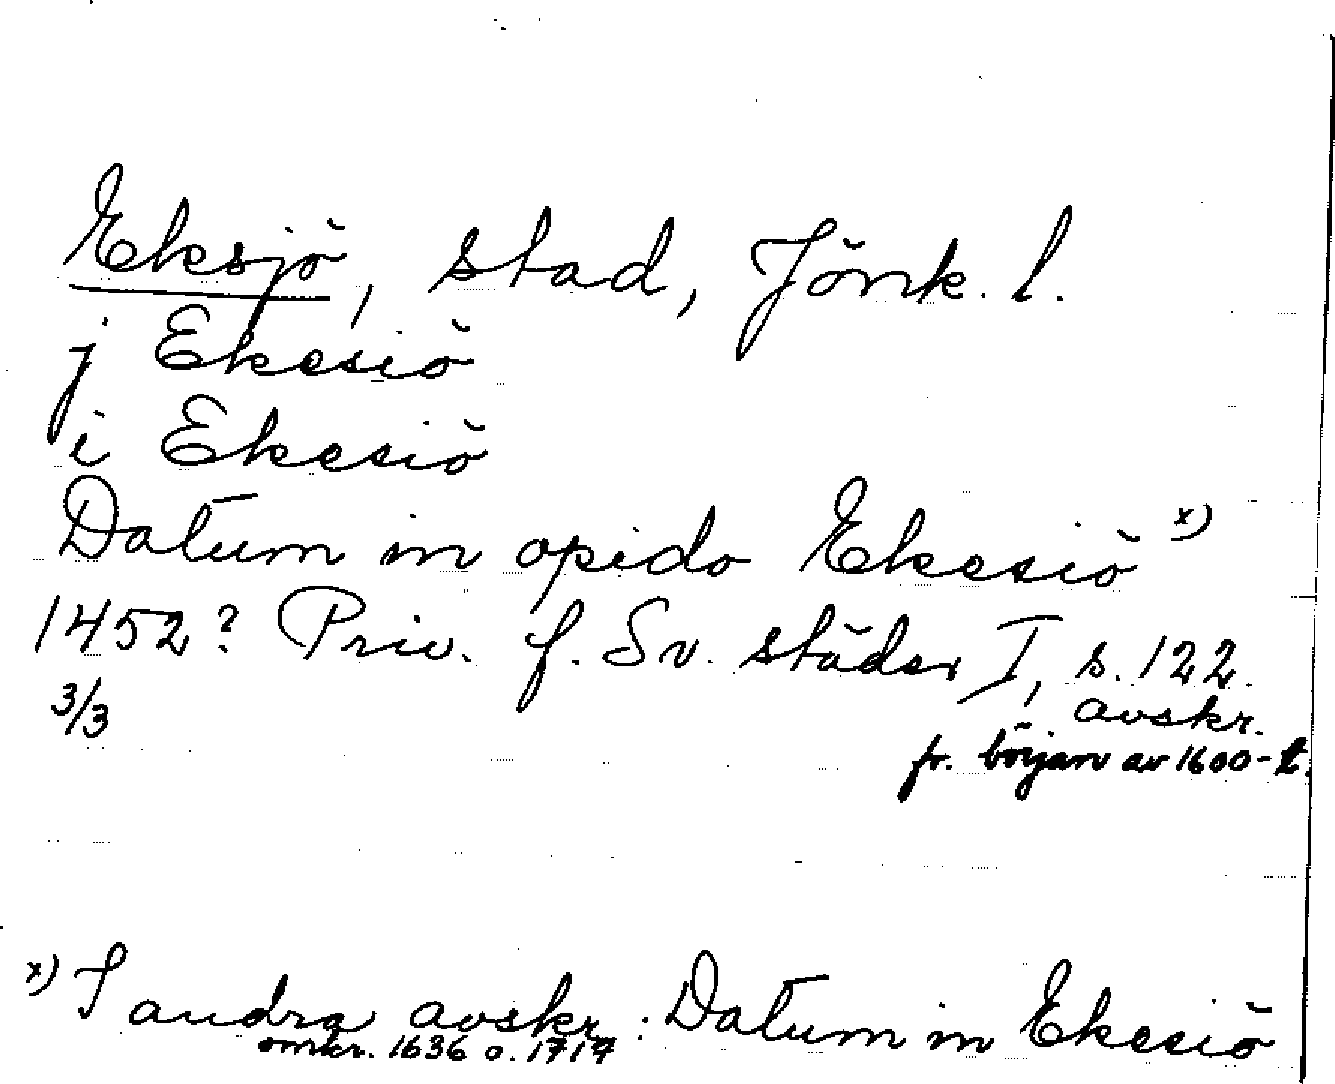 Eksjö, stad, Jönk. l.
j Ekesiö
i Ekesiö
Datum in opido Ekesiö x)
1452? Priv. f. Sv. städer I, s. 122.
3/3 avskr.
fr. början av 1600-t.
x) I andra avskr. : Datum in Ekesiö
omkr. 1636 o. 1717